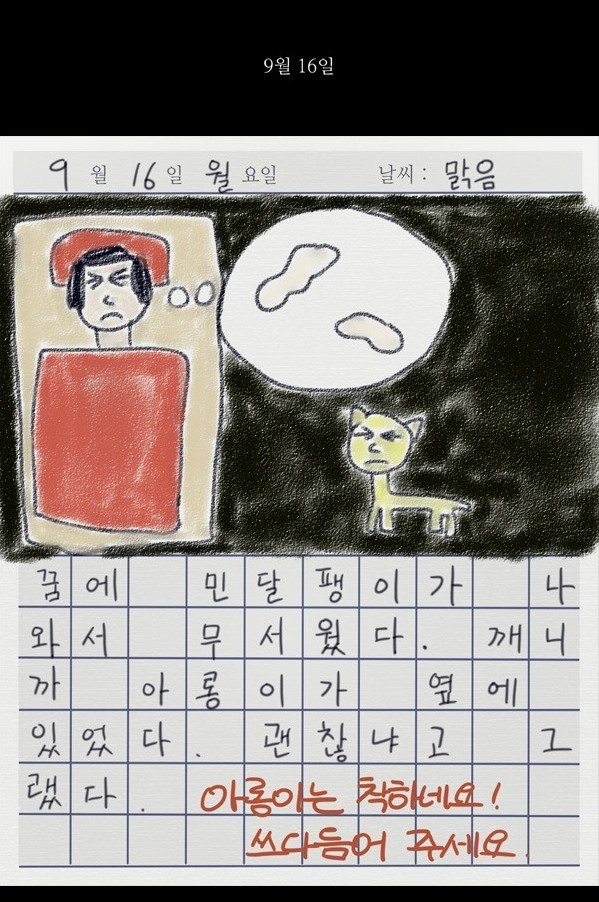 9월 16일
9월 16일 월요일 날씨 : 맑음
꿈에 민달팽이가 나
와서 무서웠다. 깨니
까 아롱이가 옆에
있었다. 괜찮냐고 그
랬다. 아롱이는 착하네요!
쓰다듬어 주세요.